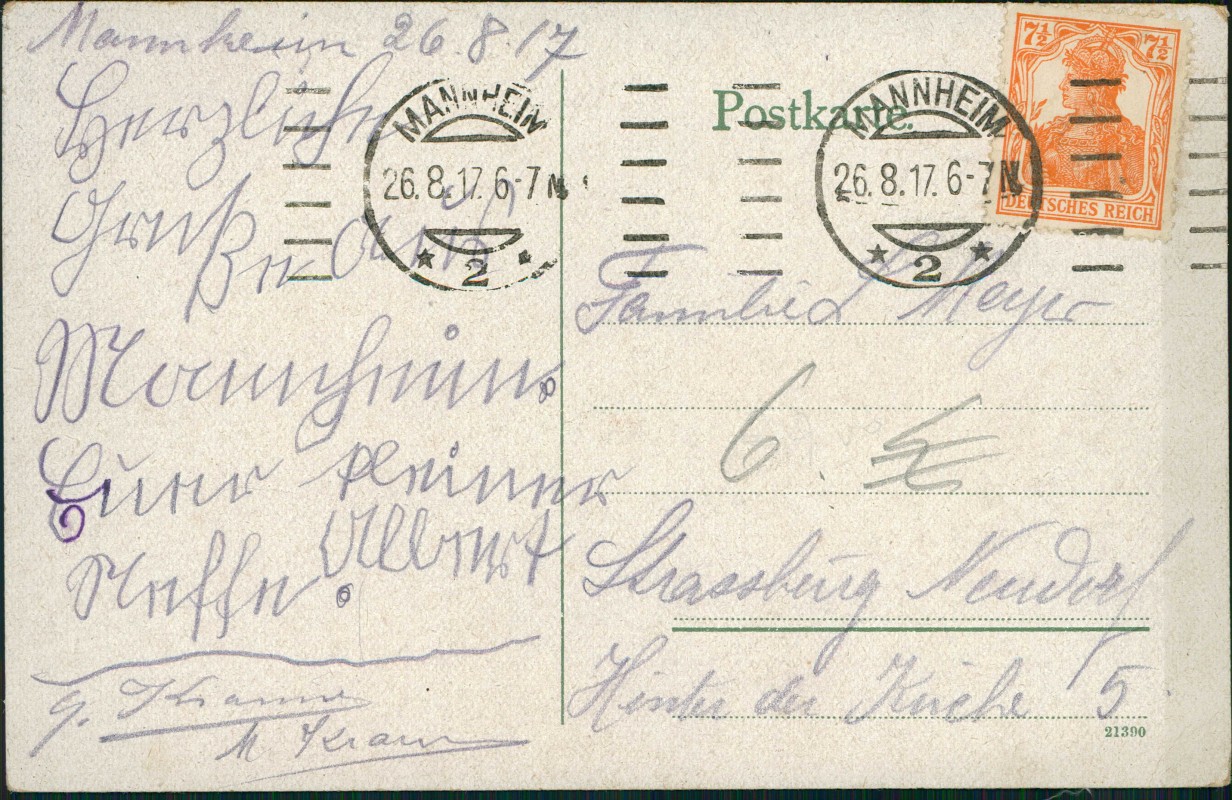 Mannheim 26.8.17
Herzliche
Gruß aus
Mannheim.
Euer kleiner
Neffe Albert.
G. Kramer
M Kram
MANNHEIM
26.8.17.6-7N
* 2 *
Postkarte.
MANNHEIM
26.8.17.6-7N
* 2 *
7½ 7½
DEUTSCHES REICH
Familie L Mayer
6.
Strassburg Neudorf
Hinter der Kirche 5
21390